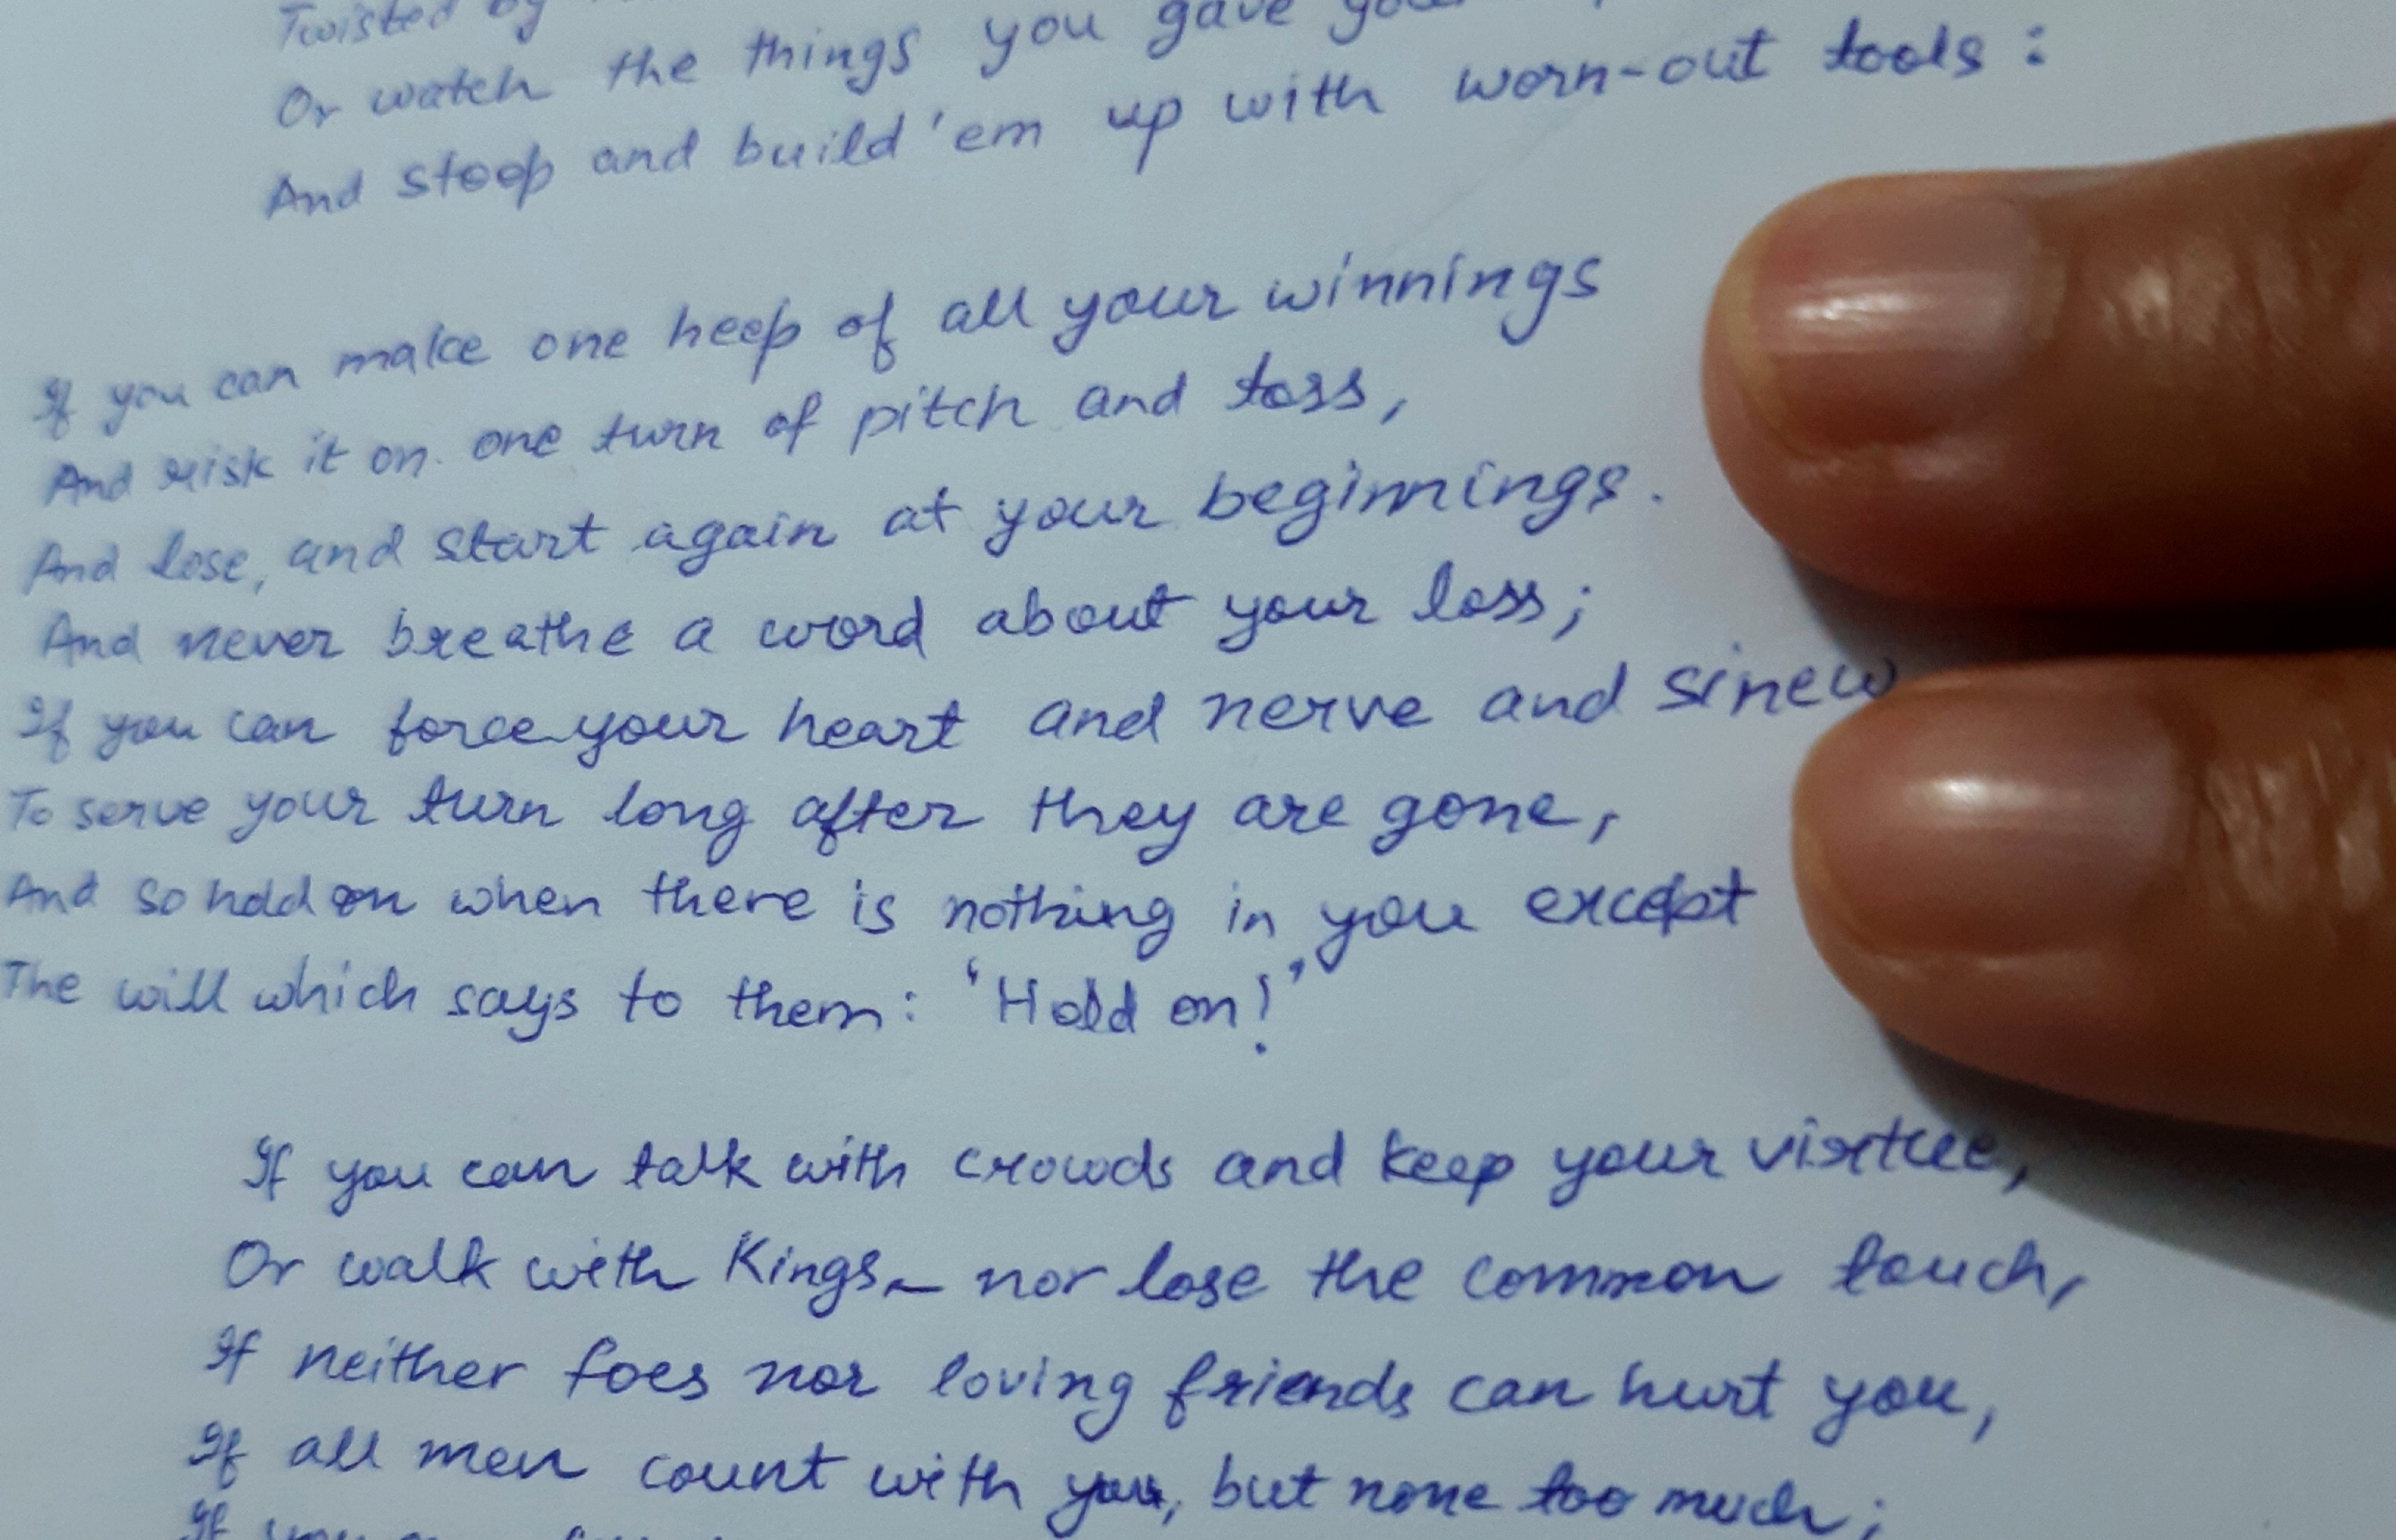 Twisted by
Or watch the things you gave
And stoop and build 'em up with worn-out tools:
If you can make one heep of all your winnings
And risk it on one turn of pitch and toss,
And lose, and start again at your beginnings.
And never breathe a word about your loss;
If you can force your heart and nerve and sinew
To serve your turn long after they are gone,
And so hold on when there is nothing in you except
The will which says to them: 'Hold on!'
If you can talk with crowds and keep your virtue,
Or walk with Kings - nor lose the common touch,
If neither foes nor loving friends can hurt you,
If all men count with you, but none too much;
If